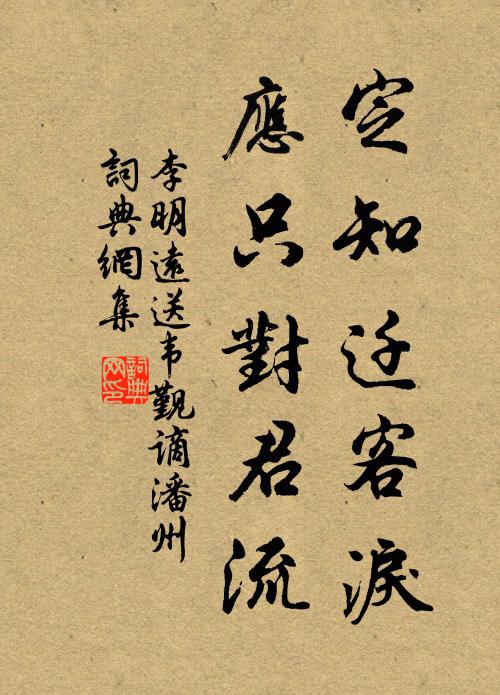 定知迁客淚
應只對君流
李明遠送韦觐谪潘州
詞典網集
詞典网印